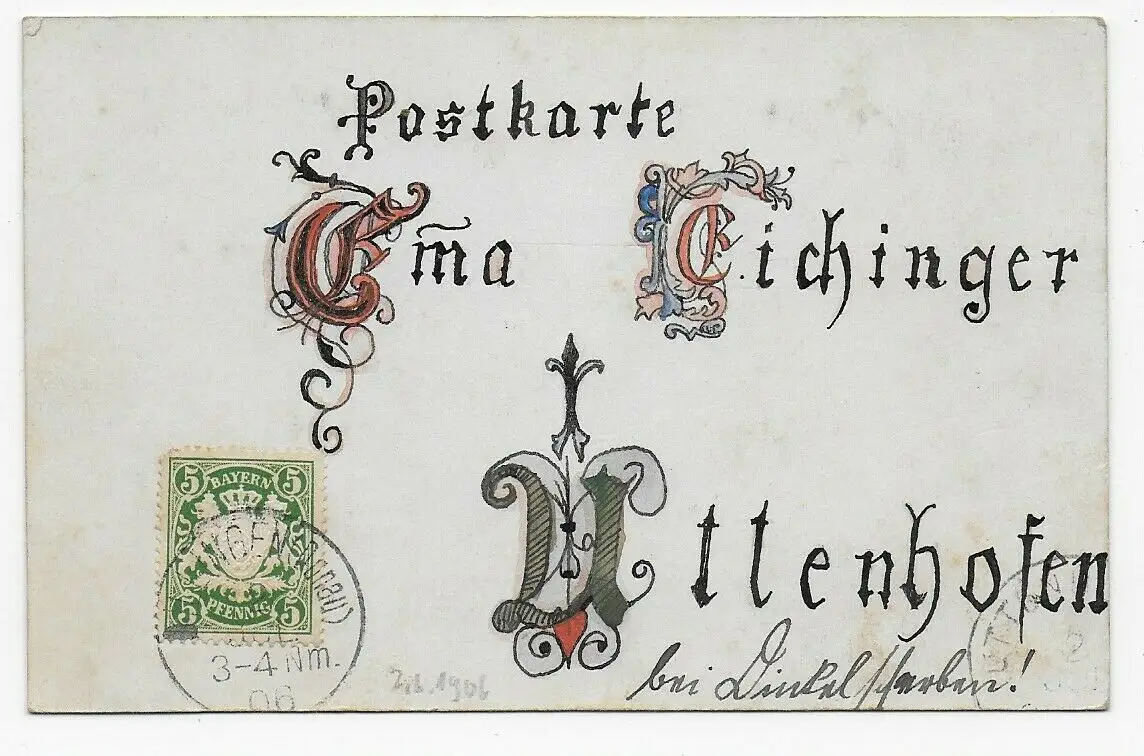 Postkarte
Em̄a Eichinger
Uttenhofen
bei Dinkelscherben!
5 BAYERN 5
5 PFENNIG 5
(Donau)
3-4 Nm.
06
1906